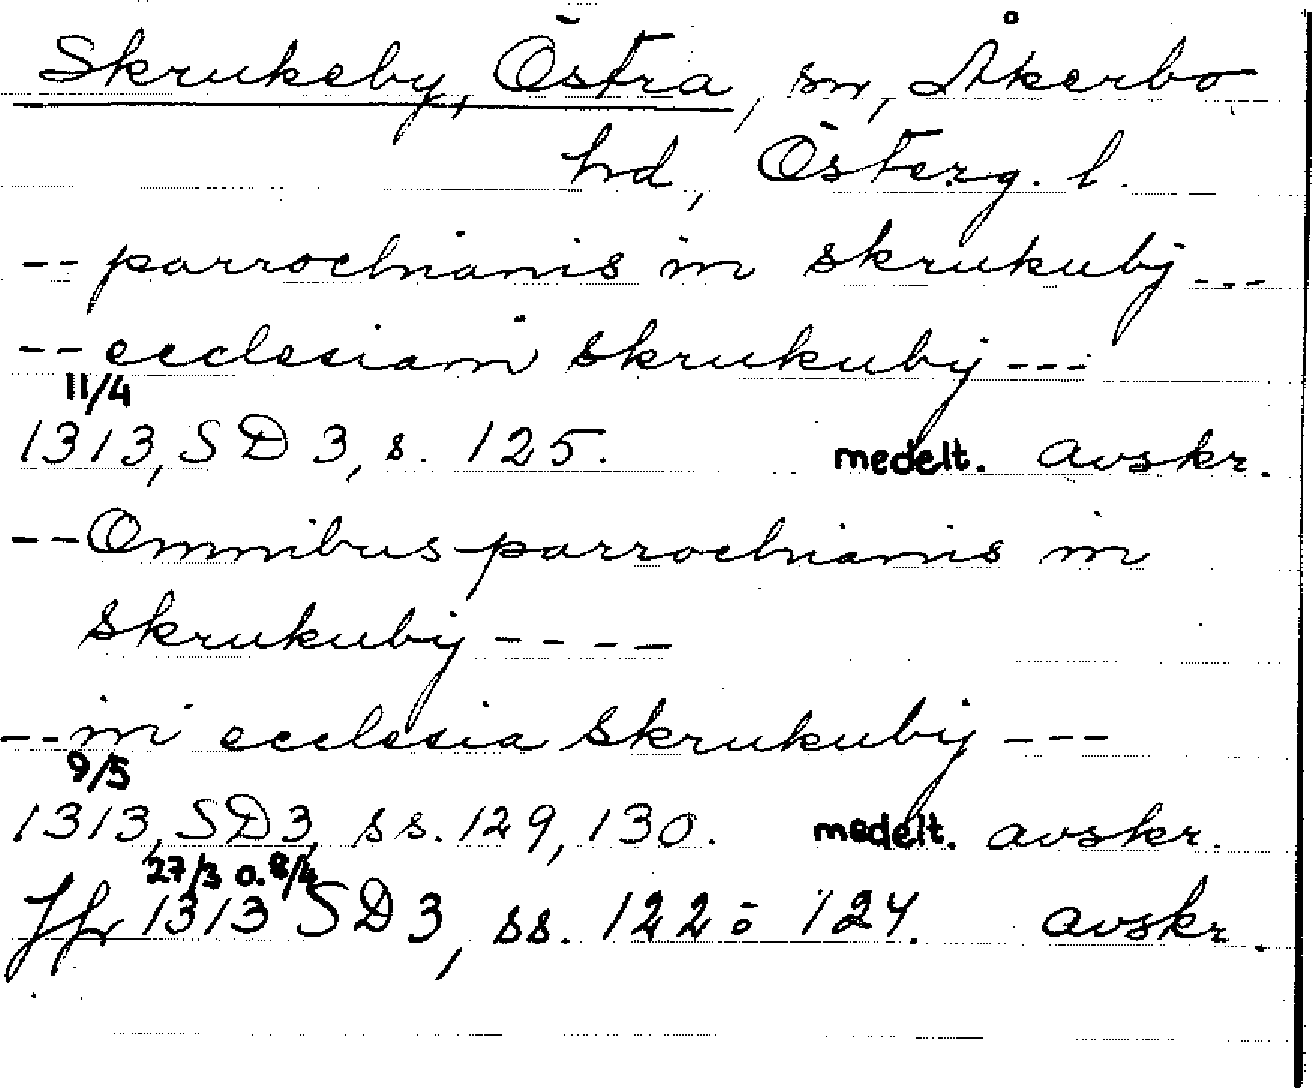 Skrukeby, Östra, sn, Åkerbo
hd, Österg. l.
-- parrochianis in skrukuby ---
-- ecclesiam skrukuby ---
11/4
1313, SD 3, s. 125. medelt. avskr.
-- Omnibus parrochianis in
skrukuby ----
-- in ecclesia skrukuby ---
9/5
1313, SD 3, ss. 129, 130. medelt. avskr.
27/3 o. 8/4
Jfr 1313 SD 3, ss. 122 o 124. avskr.